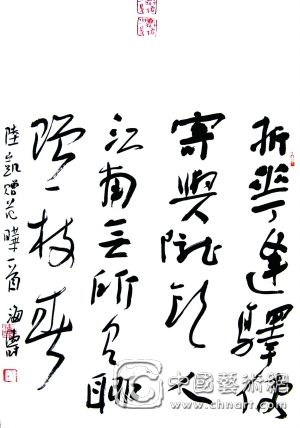 折花逢驛使
寄與隴頭人
江南无所有聊
贈一枝春
陸凱贈范曄一首
中國藝術網
www.chnart.com